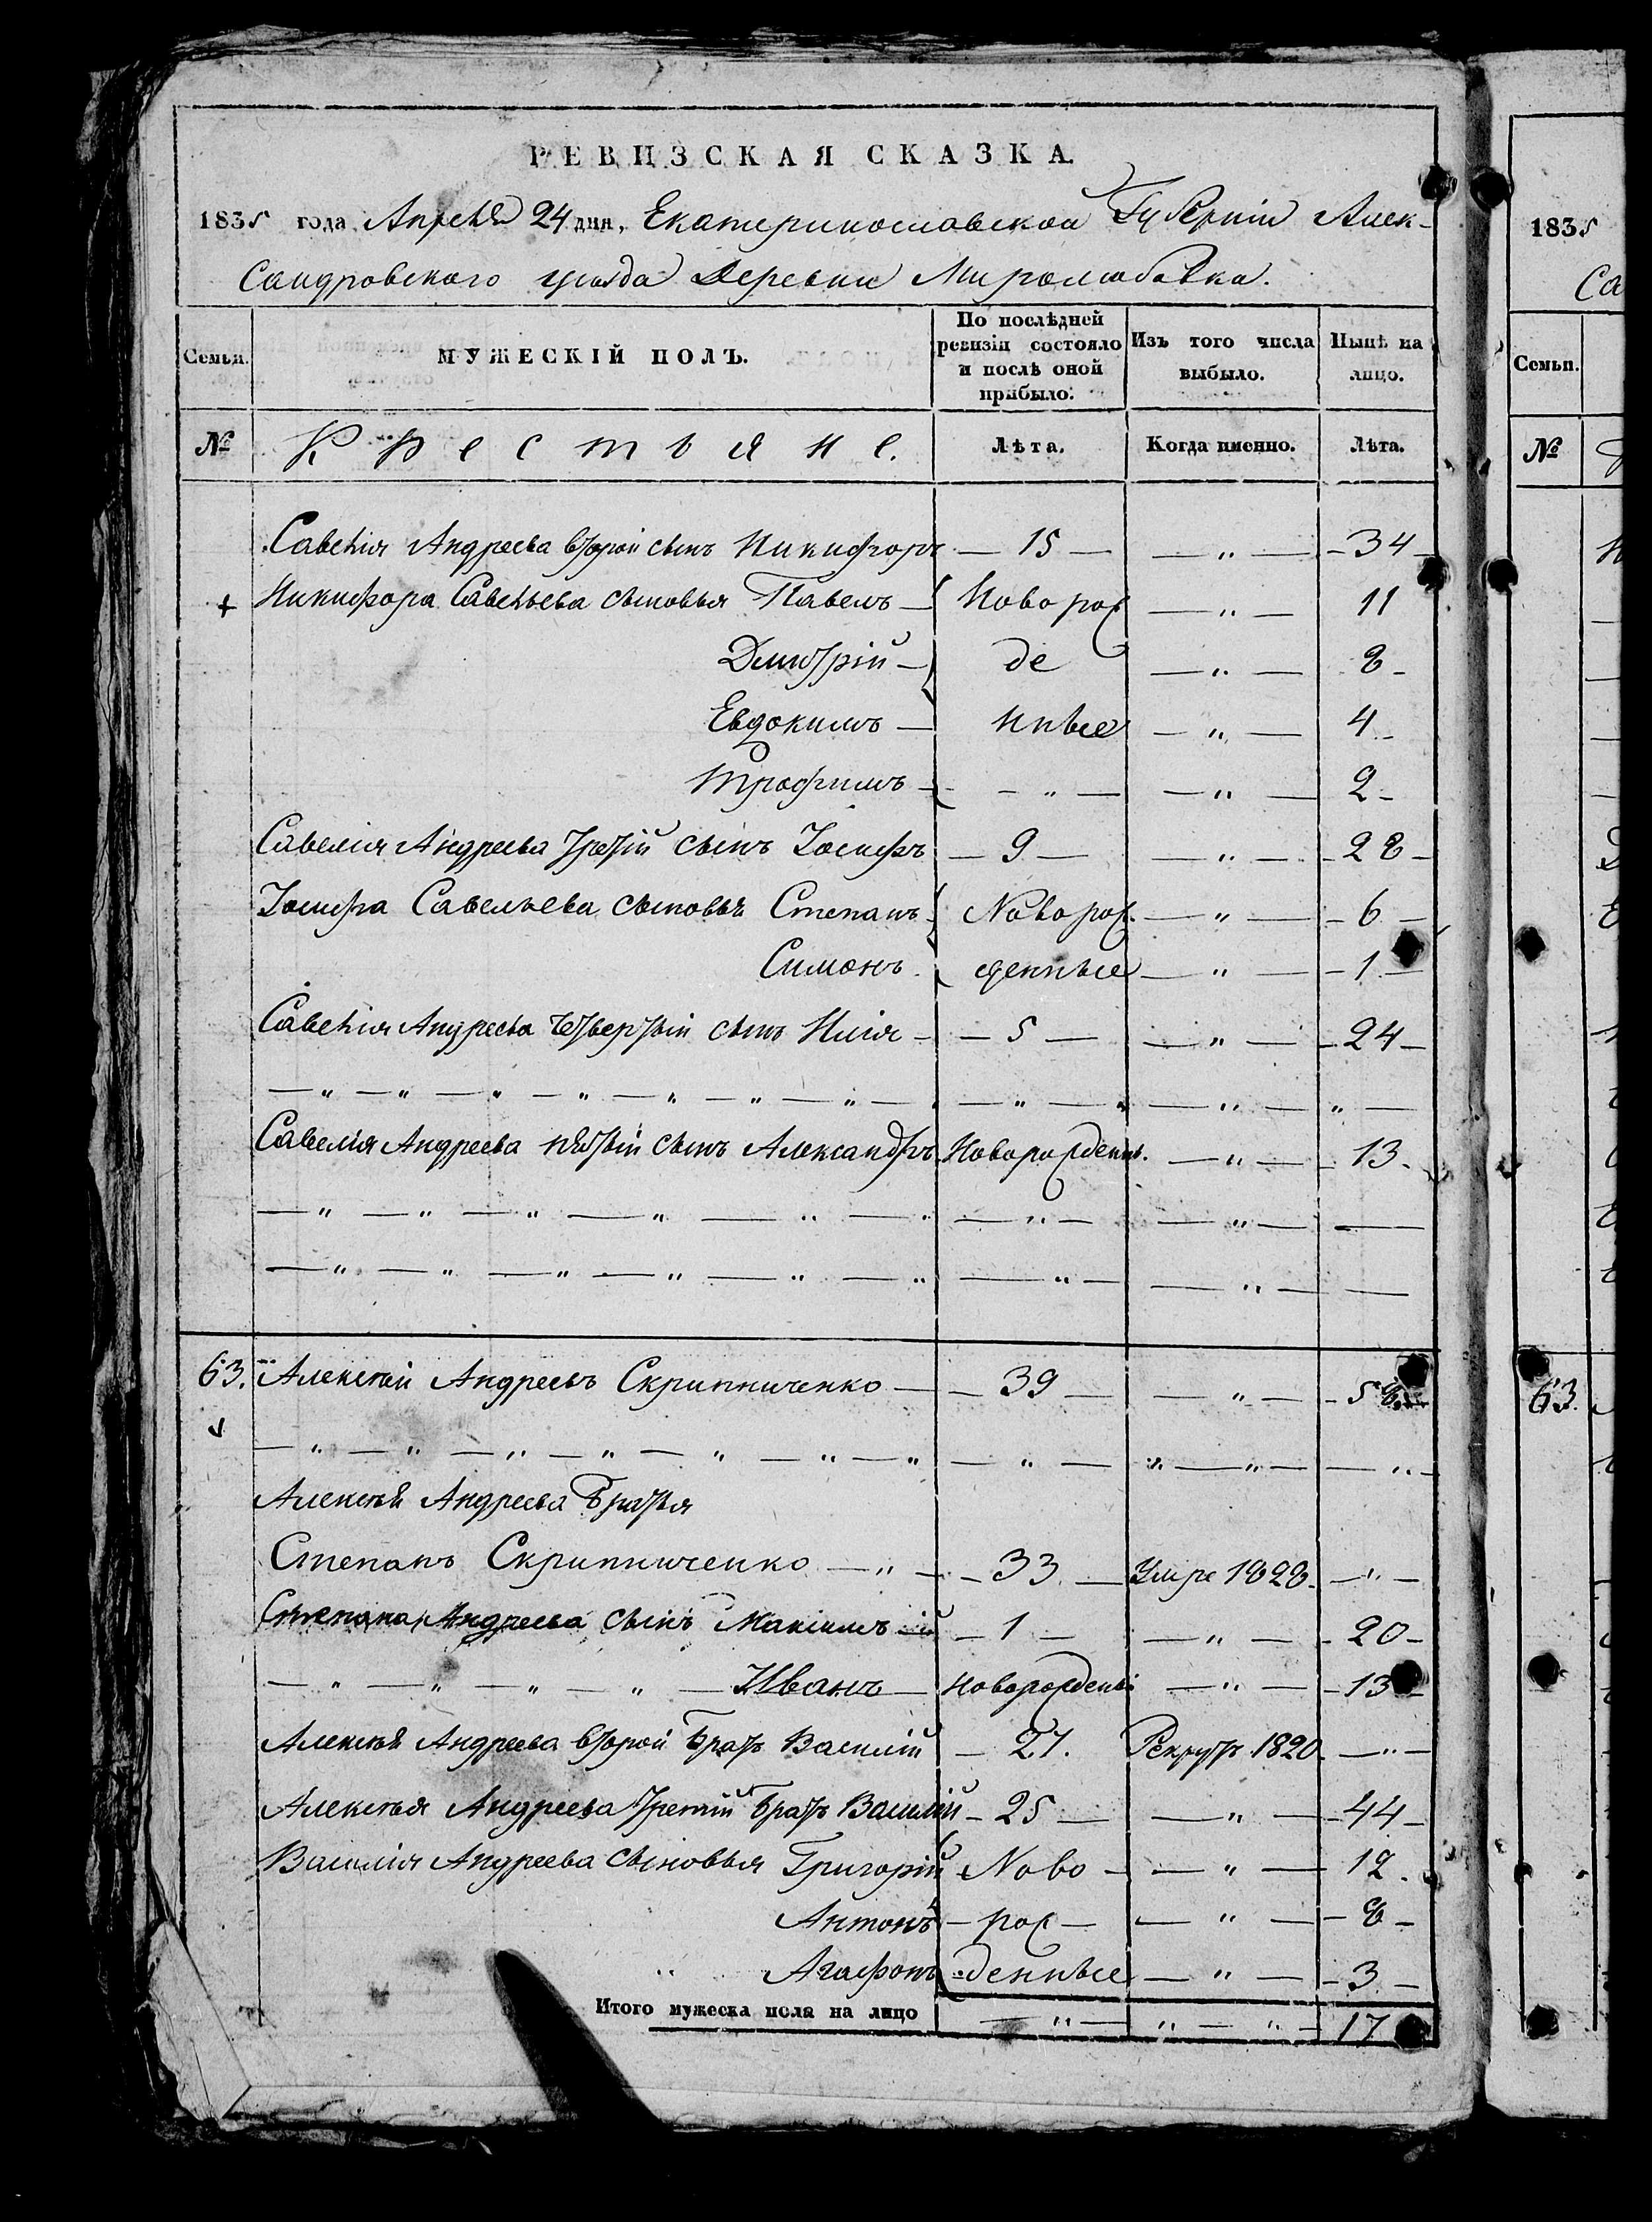 РЕВИЗСКАЯ СКАЗКА.
1835 года Апреля 24 дня, Екатеринославской Губернии Алек-
сандровского уѣзда Деревни Миролюбовка.
Семьи. МУЖЕСКІЙ ПОЛЪ. По послѣдней ревизіи состояло и послѣ оной прибыло. Изъ того числа выбыло. Нынѣ на лицо.
№ Крестьяне. Лѣта. Когда именно. Лѣта.
Савелія Андреева второй сынъ Никифоръ — 15 — — „ — - 34 -
+ Никифора Савельева сыновья Павелъ — Новорож — „ — 11
Дмитрій — де — „ — 8 -
Евдокимъ — нные — „ — 4 -
Трофимъ — — „ — — „ — 2 -
Савелія Андреева третій сынъ Іосифъ — 9 — — „ — - 28 -
Іосифа Савельева сыновья Степанъ Новорож. — „ — - 6 -
Симонъ. денные — „ — - 1 -
Савелія Андреева четвертый сынъ Илія — — 5 — — „ — - 24 -
— „ — „ — „ — „ — „ — „ — „ — — „ — „ — „ — „ —
Савелія Андреева пятый сынъ Александръ Новорожденн. — „ — - 13.
— „ — „ — „ — „ — „ — „ — „ — — „ — —
— „ — „ — „ — „ — „ — „ — „ — — „ — —
63. Алексѣй Андреевъ Скрипниченко — — 39 — — „ — - 58 -
— „ — „ — „ — „ — „ — „ — „ — „ — „ — „ — — „ -
Алексѣя Андреева Братья
Степанъ Скрипниченко — „ — - 33 — Умре 1828 - — „ —
Степана Андреева сынъ Максимъ — - 1 — — „ — - 20 -
— „ — „ — „ — „ — Иванъ — Новорожденн — „ — - 13 -
Алексѣя Андреева второй Братъ Василій — 27. Рекрутъ 1820 - — „ —
Алексѣя Андреева третій Братъ Василій - 25 — — „ — - 44 -
Василія Андреева сыновья Григорій Ново - — „ — 12.
Антонъ - рож — — „ — - 8 -
Агафонъ - денные — „ — - 3 -
Итого мужеска пола на лицо — „ — „ — „ — 17
1835
Са
Семьи.
№
63.